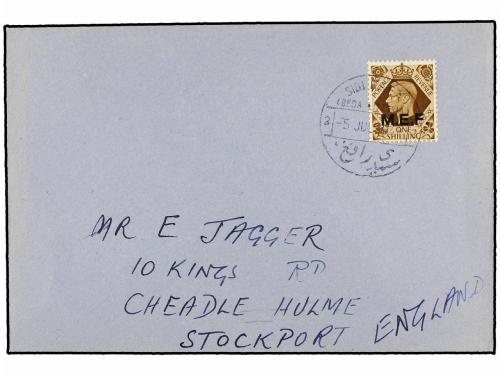 POSTAGE REVENUE
M.E.F.
ONE
SHILLING
SIDI
(BEDA
3
-5 JU
سيدى رافع
MR E JAGGER
10 KINGS RD
CHEADLE HULME
STOCKPORT ENGLAND